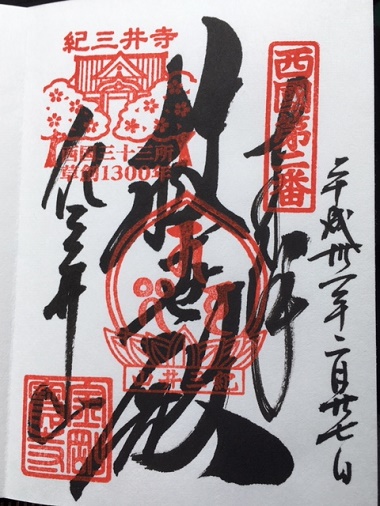 平成卅一年二月廿七日
西國第二番
奉拝
救世殿
紀三井寺
西国三十三所
草創1300年
紀三井寺